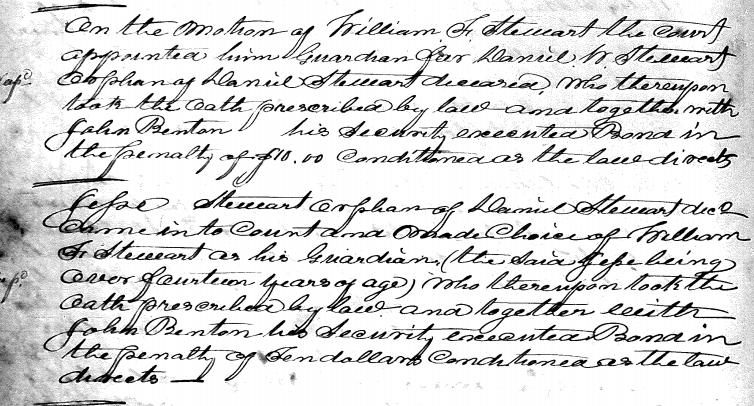 On the motion of William F. Stewart the Court
appointed him Guardian for Daniel W Stewart
Orphan of Daniel Stewart deceased, Who thereupon
took the Oath prescribed by law and together with
John Benton his Security executed Bond in
the penalty of $10.00 Conditioned as the law directs
Jesse Stewart Orphan of Daniel Stewart decd
Came in to Court and made Choice of William
F. Stewart as his Guardian, (the said Jesse being
over fourteen years of age) Who thereupon took the
Oath prescribed by law and together with
John Benton his Security executed Bond in
the penalty of Ten dollars Conditioned as the law
directs